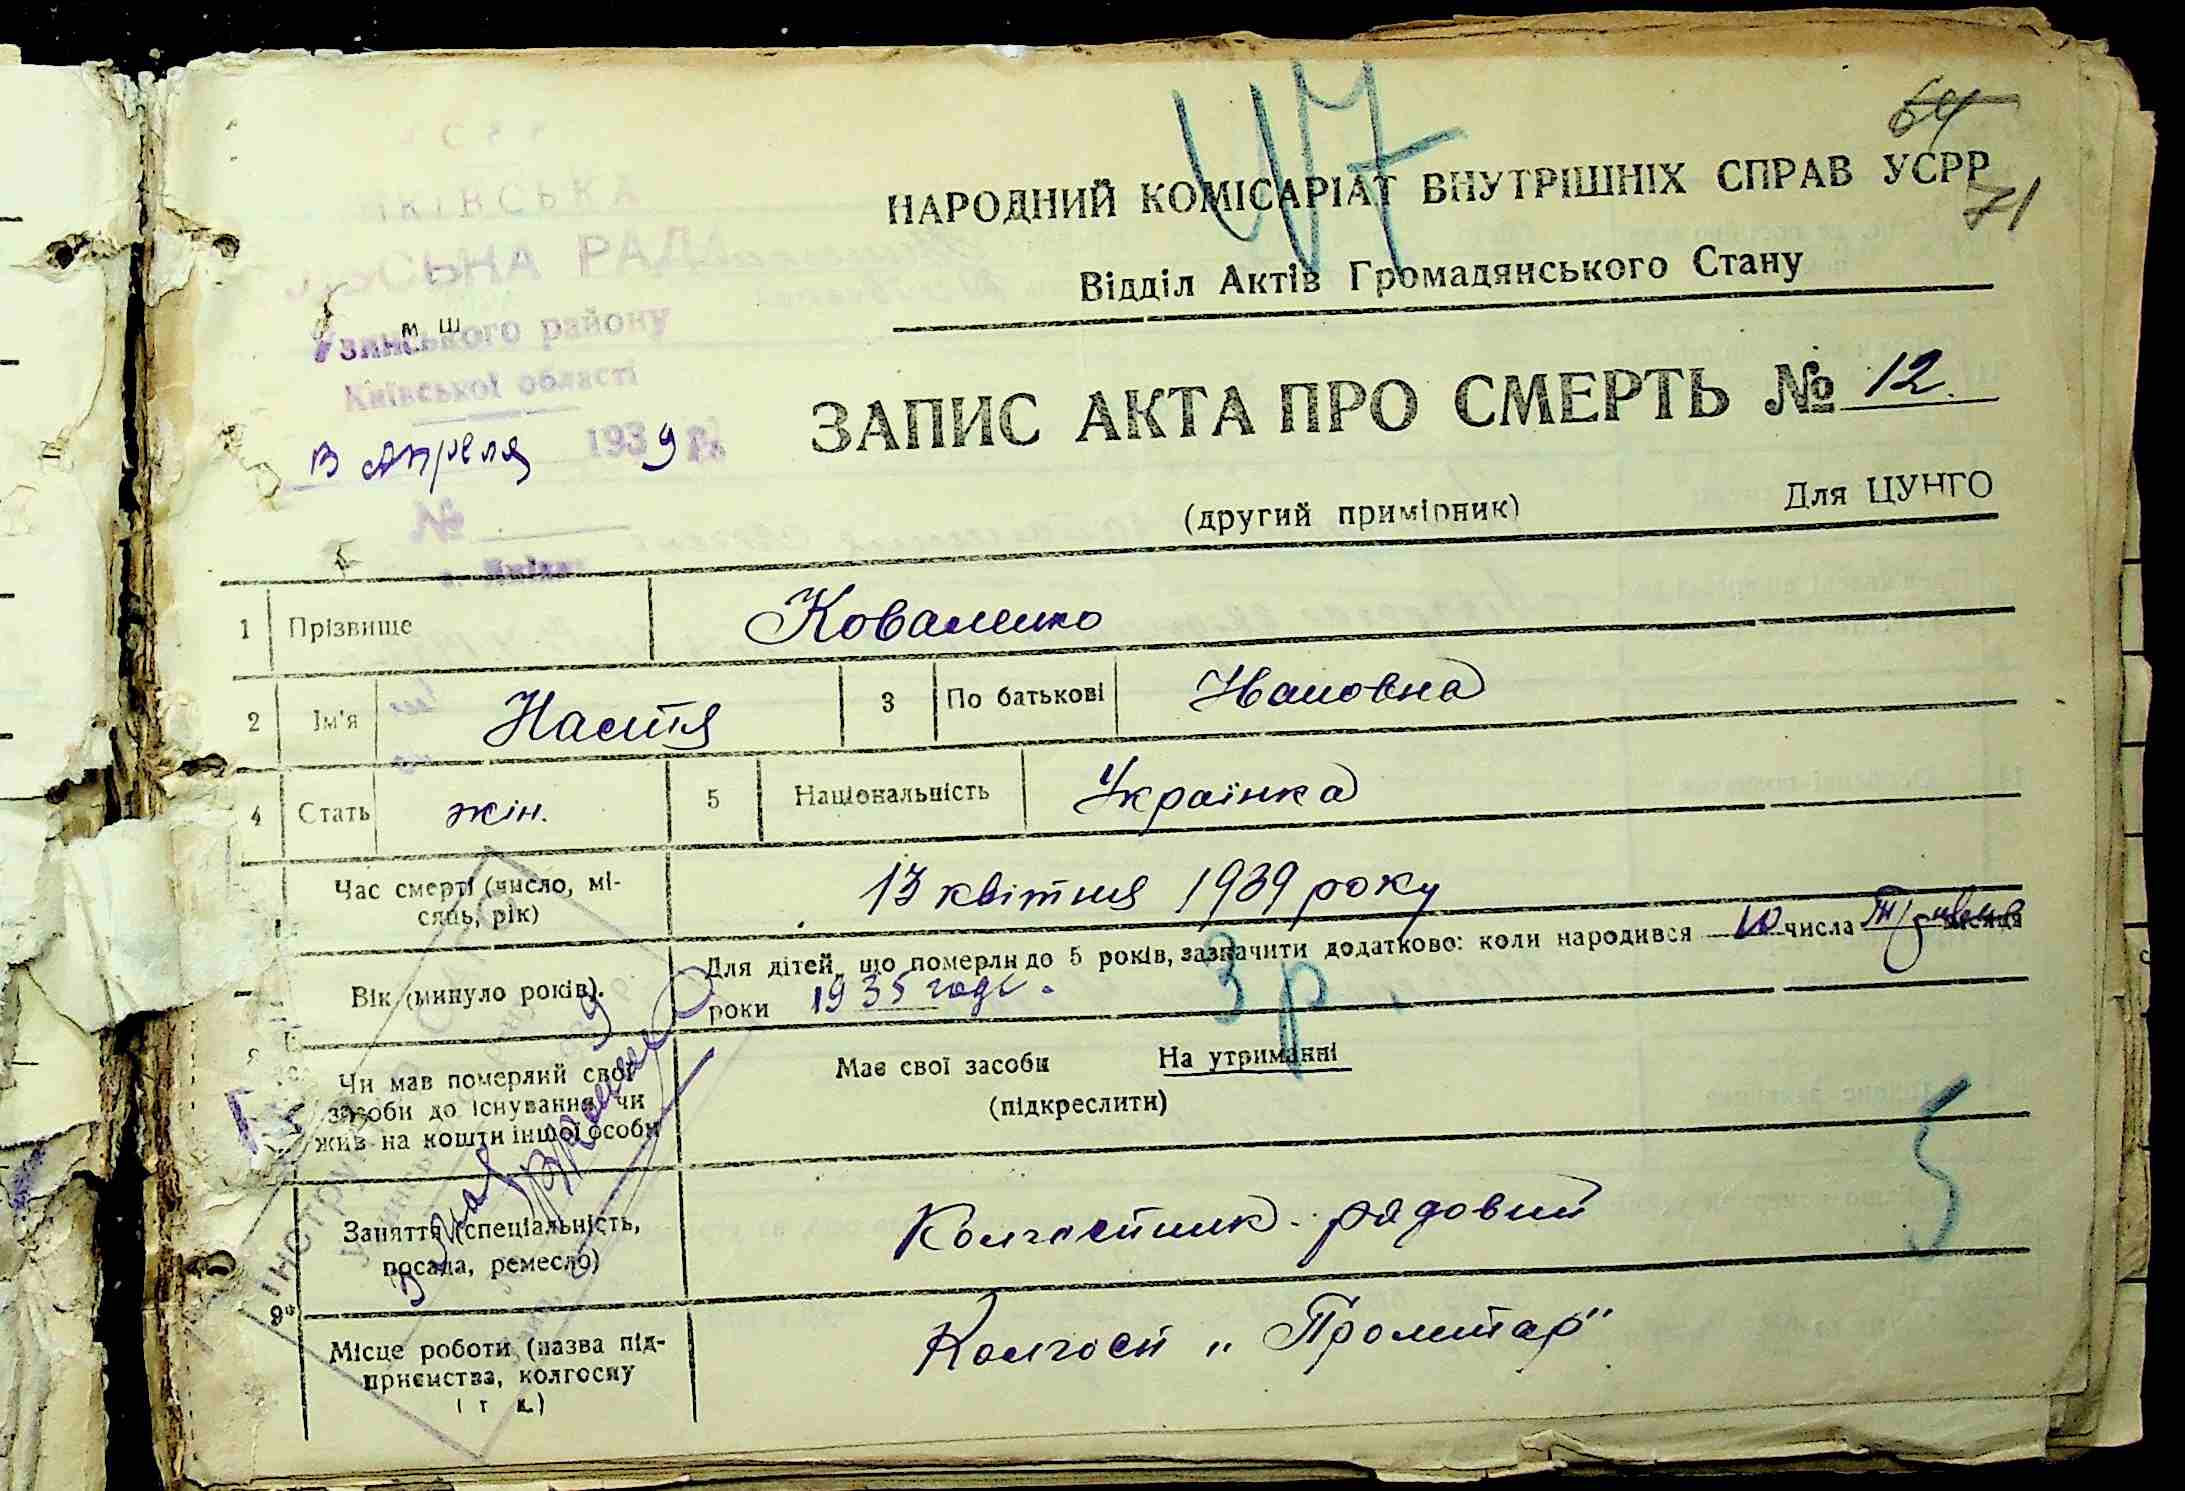 64
71
117
НАРОДНИЙ КОМІСАРІАТ ВНУТРІШНІХ СПРАВ УСРР
Відділ Актів Громадянського Стану
СІЛЬСЬКА РАДА
Узинського району
Київської області
13 Апреля 1939 р.
№
ЗАПИС АКТА ПРО СМЕРТЬ № 12.
(другий примірник)
Для ЦУНГО
1 Прізвище Коваленко
2 Ім'я Настя 3 По батькові Івановна
4 Стать жін. 5 Національність Українка
Час смерті (число, мі-
сяць, рік) 13 квітня 1939 року
Вік (минуло років). Для дітей, що померли до 5 років, зазначити додатково: коли народився 10 числа місяця
роки 1935 года. 3 р.
Чи мав померлий свої
засоби до існування, чи
жив на кошти іншої особи
Має свої засоби На утриманні
(підкреслити)
Заняття (спеціальність,
посада, ремесло) Колгоспник рядовий
5
9
Місце роботи (назва під-
приємства, колгоспу
і т. д.) Колгосп „Пролетар"